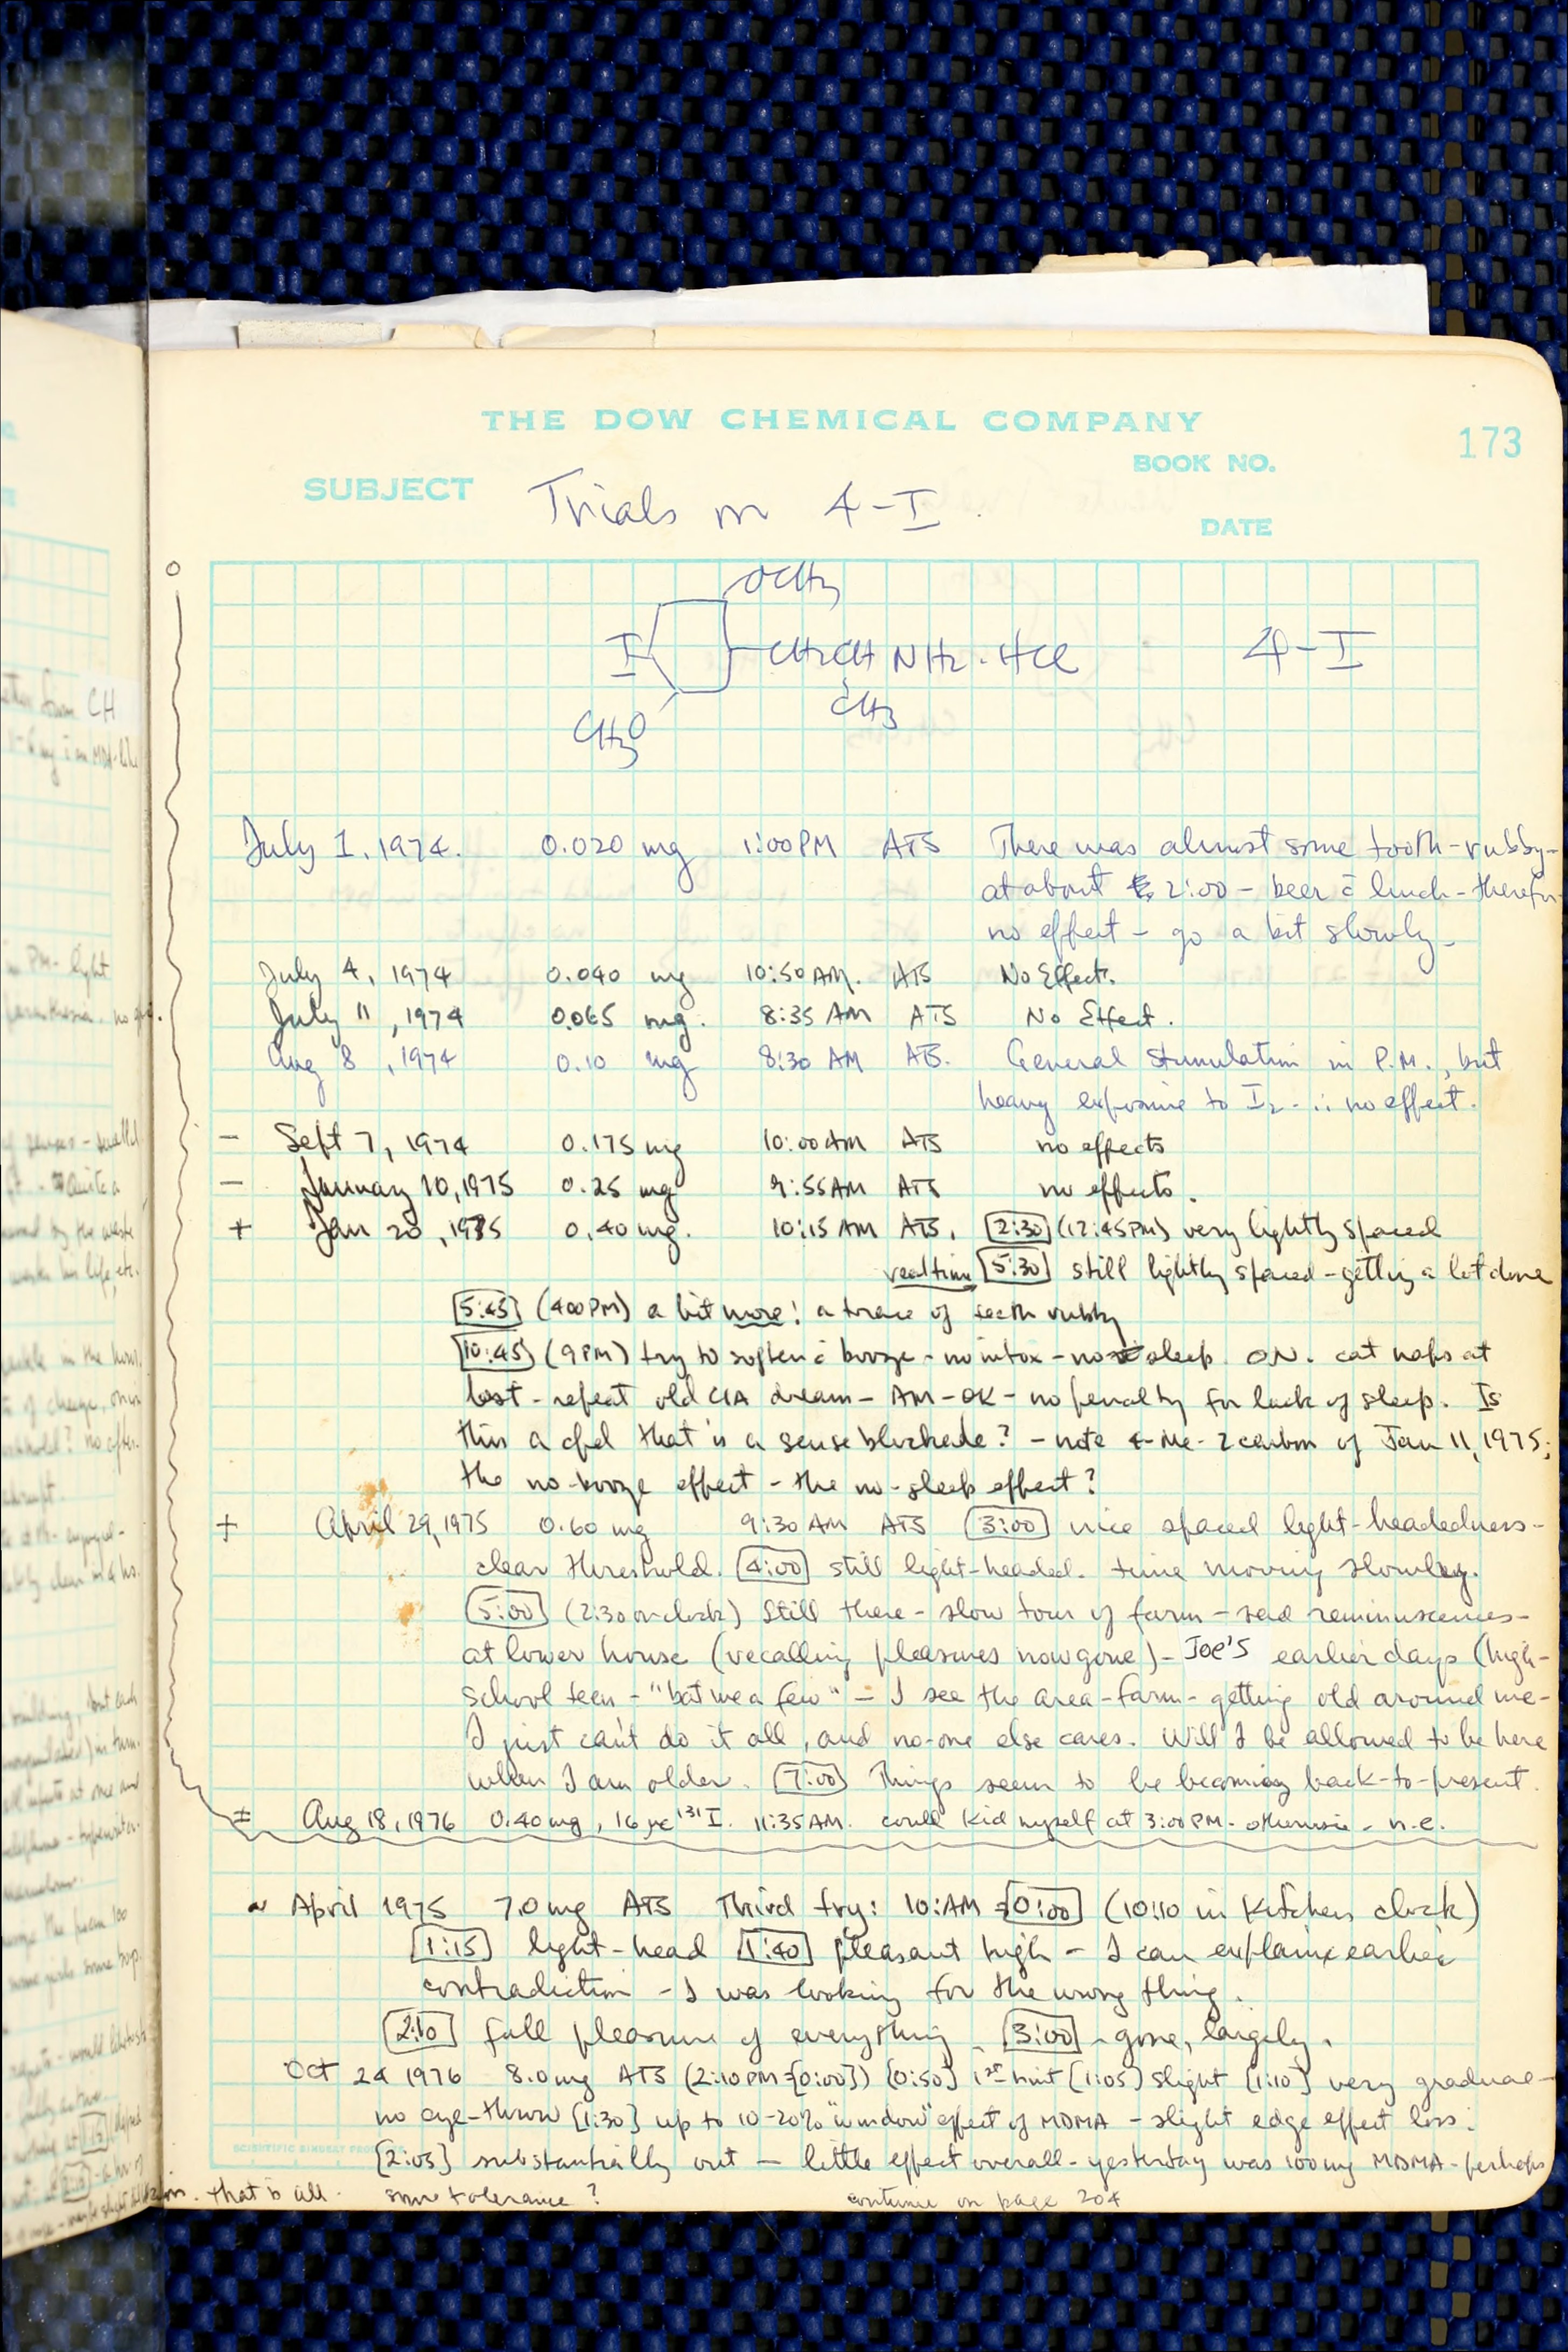 THE DOW CHEMICAL COMPANY
173
BOOK NO.
SUBJECT Trials on 4-I
DATE
OCH3
I CH2CH NH2·HCl 4-I
CH3
CH3O
July 1, 1974. 0.020 mg 1:00PM ATS There was almost some tooth-rubby-
at about 2:00 - beer c̄ lunch - therefor
no effect - go a bit slowly -
July 4, 1974 0.040 mg 10:50 AM. ATS No Effect.
July 11, 1974 0.065 mg. 8:35 AM ATS No Effect.
Aug 8, 1974 0.10 mg 8:30 AM ATS. General Stimulation in P.M., but
heavy exposure to I2 - ∴ no effect.
- Sept 7, 1974 0.175 mg 10:00 AM ATS no effects
- January 10, 1975 0.25 mg 9:55 AM ATS no effects.
+ Jan 20, 1975 0.40 mg. 10:15 AM ATS. [2:30] (12:45 PM) very lightly spaced
real time [5:30] still lightly spaced - getting a lot done
[5:45] (400 PM) a bit more! a trace of teeth rubby
[10:45] (9 PM) try to soften c̄ booze - no intox - no sleep. ON. cat naps at
best - repeat old CIA dream - AM - OK - no penalty for lack of sleep. Is
this a cpd that is a sense blockade? - note 4-Me-2 carbon of Jan 11, 1975;
the no-booze effect - the no-sleep effect?
+ April 29, 1975 0.60 mg 9:30 AM ATS [3:00] nice spaced light-headedness -
clear threshold. [4:00] still light-headed. time moving slowley.
[5:00] (2:30 on clock) Still there - slow tour of farm - sad reminiscences -
at lower house (recalling pleasures now gone) - Joe's earlier days (high-
school teen - "bat me a few" - I see the area - farm - getting old around me -
I just can't do it all, and no-one else cares. Will I be allowed to be here
when I am older. [7:00] Things seem to be becoming back-to-present.
± Aug 18, 1976 0.40 mg, 16 μc 131I. 11:35 AM. could kid myself at 3:00 PM - otherwise - n.e.
~ April 1975 7.0 mg ATS Third try: 10:AM = [0:00] (10:10 in kitchen clock)
[1:15] light-head [1:40] pleasant high - I can explain earlier
contradiction - I was looking for the wrong thing.
[2:10] full pleasure of everything. [3:00] ~ gone, largely.
Oct 24 1976 8.0 mg ATS (2:10 PM = [0:00]) [0:50] 1st hint [1:05] slight [1:10] very gradual -
no eye-throw [1:30] up to 10-20% "window" effect of MDMA - slight edge effect loss.
SCIENTIFIC BINDERY PRO
[2:05] substantially out - little effect overall - yesterday was 100 mg MDMA - perhaps
that is all. some tolerance? continue on page 204